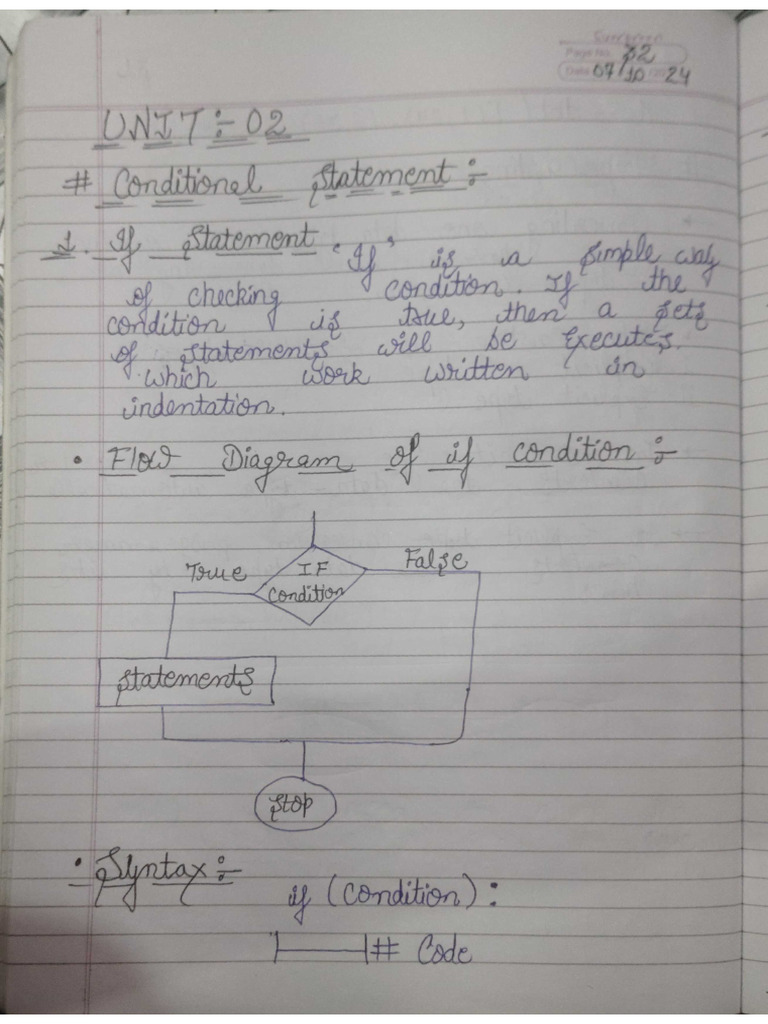 Evergreen
Page No. 32
Date 07/10/2024
UNIT :- 02
# Conditional Statement :-
1. If Statement "If" is a simple way
of checking condition. If the
condition is true, then a sets
of statements will be executes.
which work written in
indentation.
• Flow Diagram of if condition :-
True IF False
condition
Statements
Stop
• Syntax :-
if (condition) :
# Code